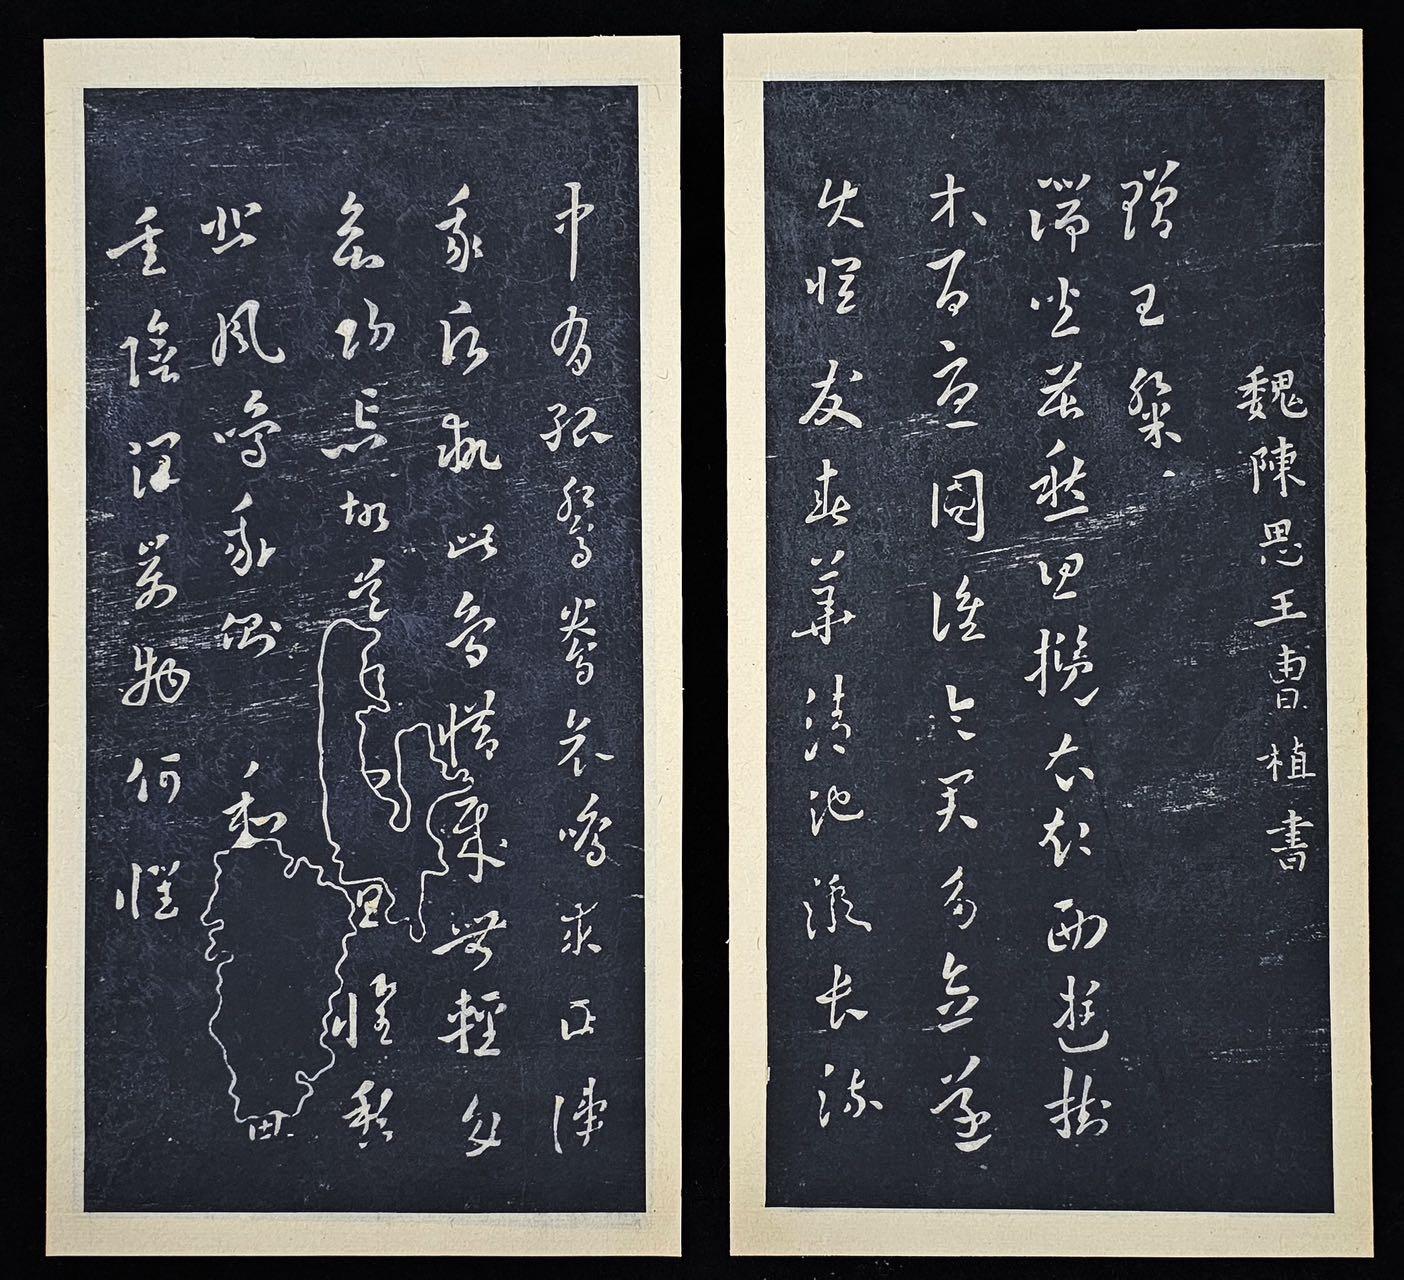 魏陳思王曹植書
贈王粲
端坐苦愁思攬衣起西遊樹
木百憂國誰令君多念遂
失懷友春華清池激長流
中有孤鴛鴦哀鳴求匹儔
我願執此鳥惜哉無輕舟
欲歸忘故道但懷愁
悲風鳴我側和
重陰潤萬物何懼